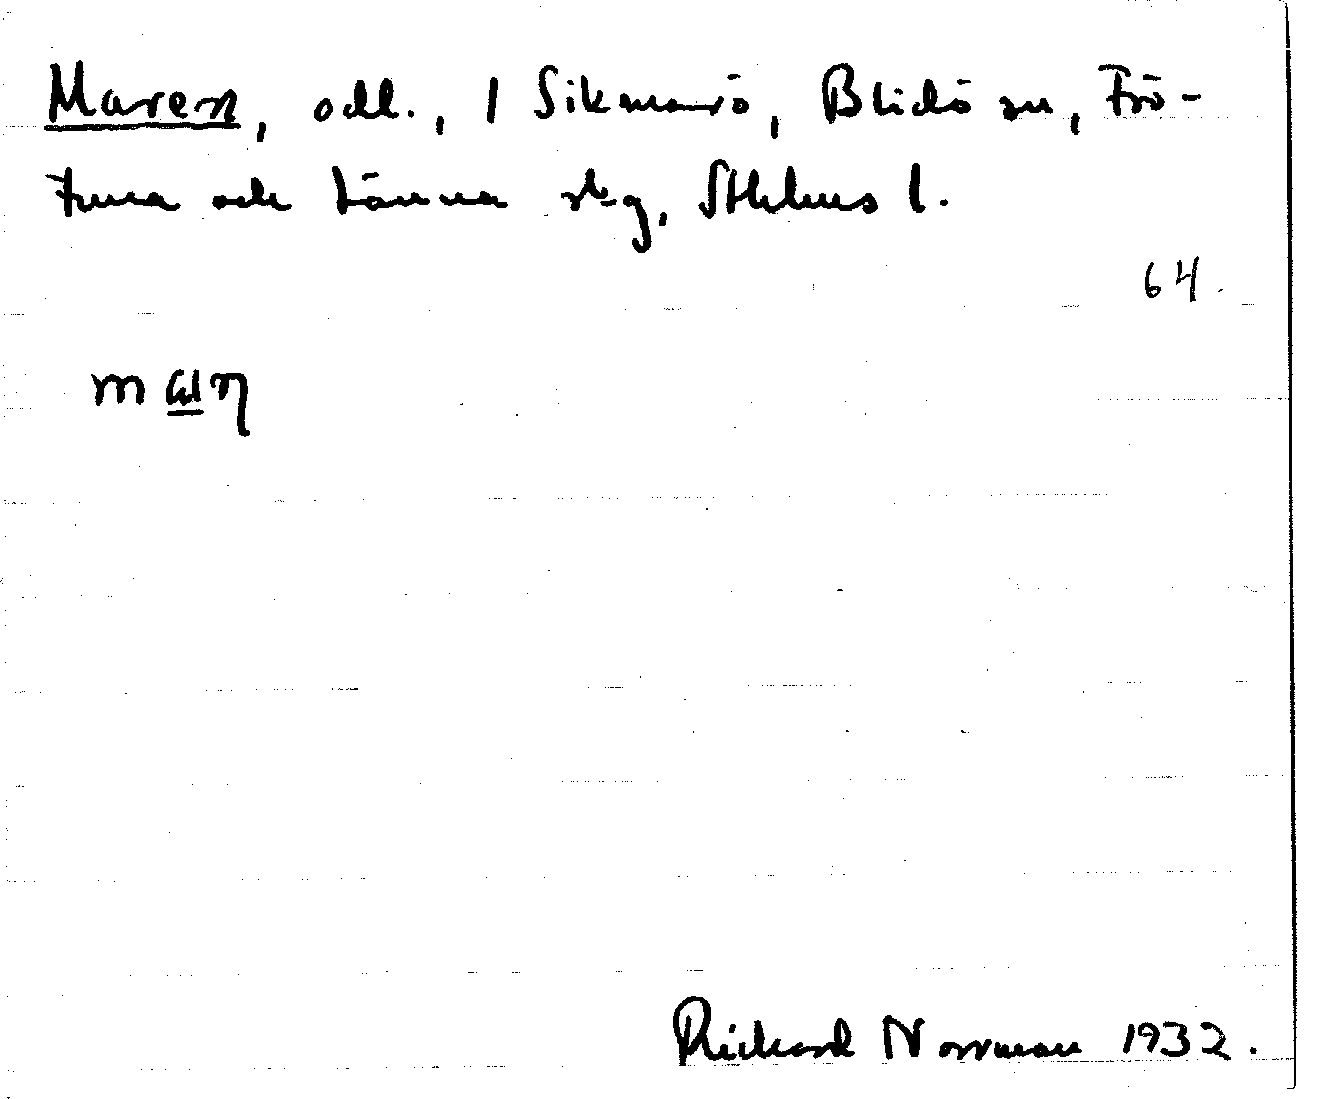 Maren, odl., 1 Sikmarö, Blidö sn, Frö-
tuna och Länna skg, Sthlms l.
64.
Rickard Norrman 1932.